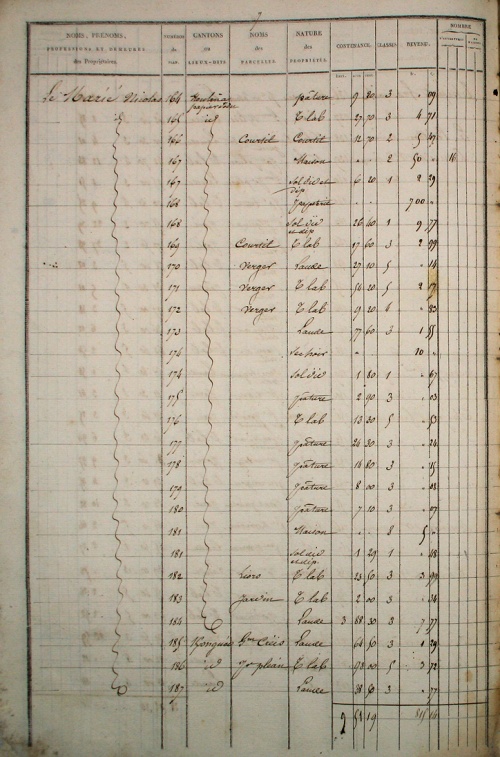 7
NOMS, PRÉNOMS, PROFESSIONS ET DEMEURES des Propriétaires. NUMÉROS du PLAN. CANTONS ou LIEUX-DITS NOMS des PARCELLES. NATURE des PROPRIÉTÉS. CONTENANCE. CLASSES REVENU. NOMBRE
Le Marié Nicolas 164 pâture 9 20 3 " 09
id 165 id T lab 27 70 3 4 71
166 Courtil Courtil 12 70 2 5 47
167 Maison " " 2 50 " 16
167 Sol d'id et dép 6 20 1 2 29
168 700 "
168 Sol d'id et dép 26 60 1 9 77
169 Courtil T lab 17 60 3 2 99
170 Verger Lande 27 10 5 " 14
171 Verger T lab 54 20 5 2 17
172 Verger T lab 9 20 4 " 83
173 Lande 77 60 3 1 55
174 Sechoir " 10 "
174 Sol d'id 1 80 1 " 67
175 pâture 2 90 3 " 03
176 T lab 13 30 5 " 53
177 pâture 24 30 3 " 24
178 pâture 14 80 3 " 15
179 pâture 8 00 3 " 08
180 pâture 7 10 3 " 07
181 Maison " " 8 5 "
181 Sol d'id et dép. 1 29 1 " 48
182 Liors T lab 23 50 3 3 99
183 Jardin T lab 2 00 3 " 34
184 Lande 3 88 30 3 7 77
185 Lande 64 50 3 1 29
186 id T lab 93 00 5 3 72
187 id Lande 38 50 3 " 77